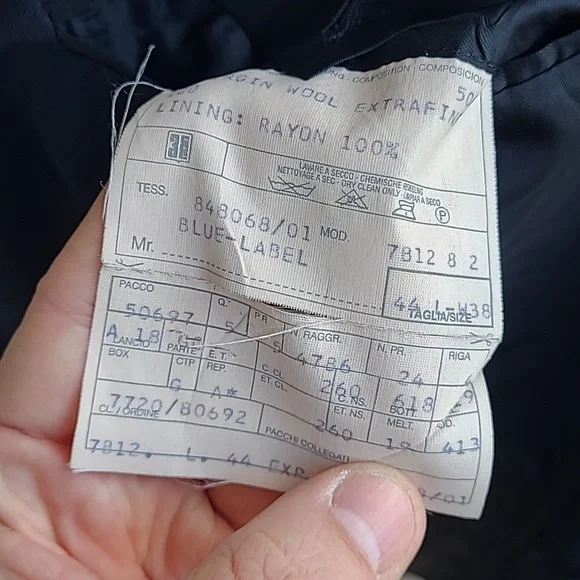 COMPOSITION - COMPOSICION
50
WOOL EXTRAFIN
LINING: RAYON 100%
LAVARE A SECCO - CHEMISCHE REINIGUNG
NETTOYAGE A SEC - DRY CLEAN ONLY - LIMPIAR A SECO
P
TESS. 848068/01 MOD. 7812 8 2
BLUE-LABEL
Mr. 44 L-W38
TAGLIA/SIZE
PACCO Q. PR. N. RAGGR. N. PR. RIGA
50697 5 S 4786 24 29
LANCIO PARTE E.T. C. CL. C. NS. BOTT.
A 18 260 618
BOX CTP REP. ET. CL. ET. NS. MELT.
G A* 260 19 413
CL./ORDINE PACCHI COLLEGATI
7720/80692
7812. L. 44 EXR